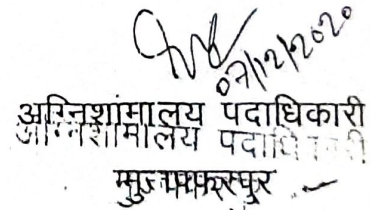 07/12/2020
अग्निशामालय पदाधिकारी
अग्निशामालय पदाधिकारी
मुजफ्फरपुर